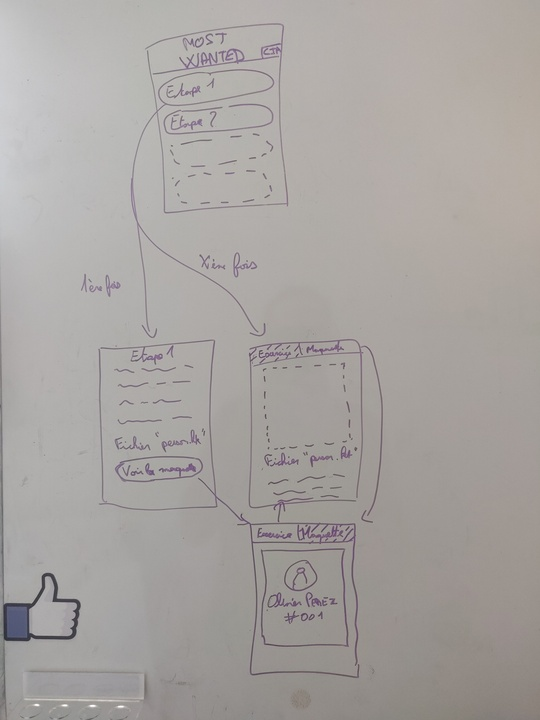 MOST
WANTED
Etape 1
Etape 2
1ère fois
Xième fois
Etape 1
Fichier "person.kt"
Voir la maquette
Exercice
Maquette
Fichier "person.kt"
Exercice
Maquette
Olivier PEREZ
#001